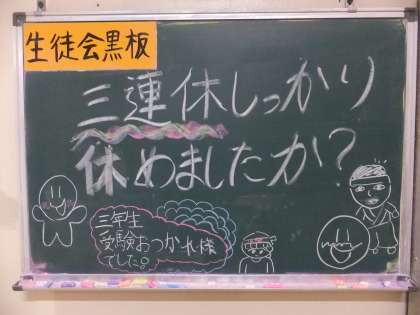 生徒会黒板
三連休しっかり
休めましたか?
三年生
受験おつかれ様
でした。